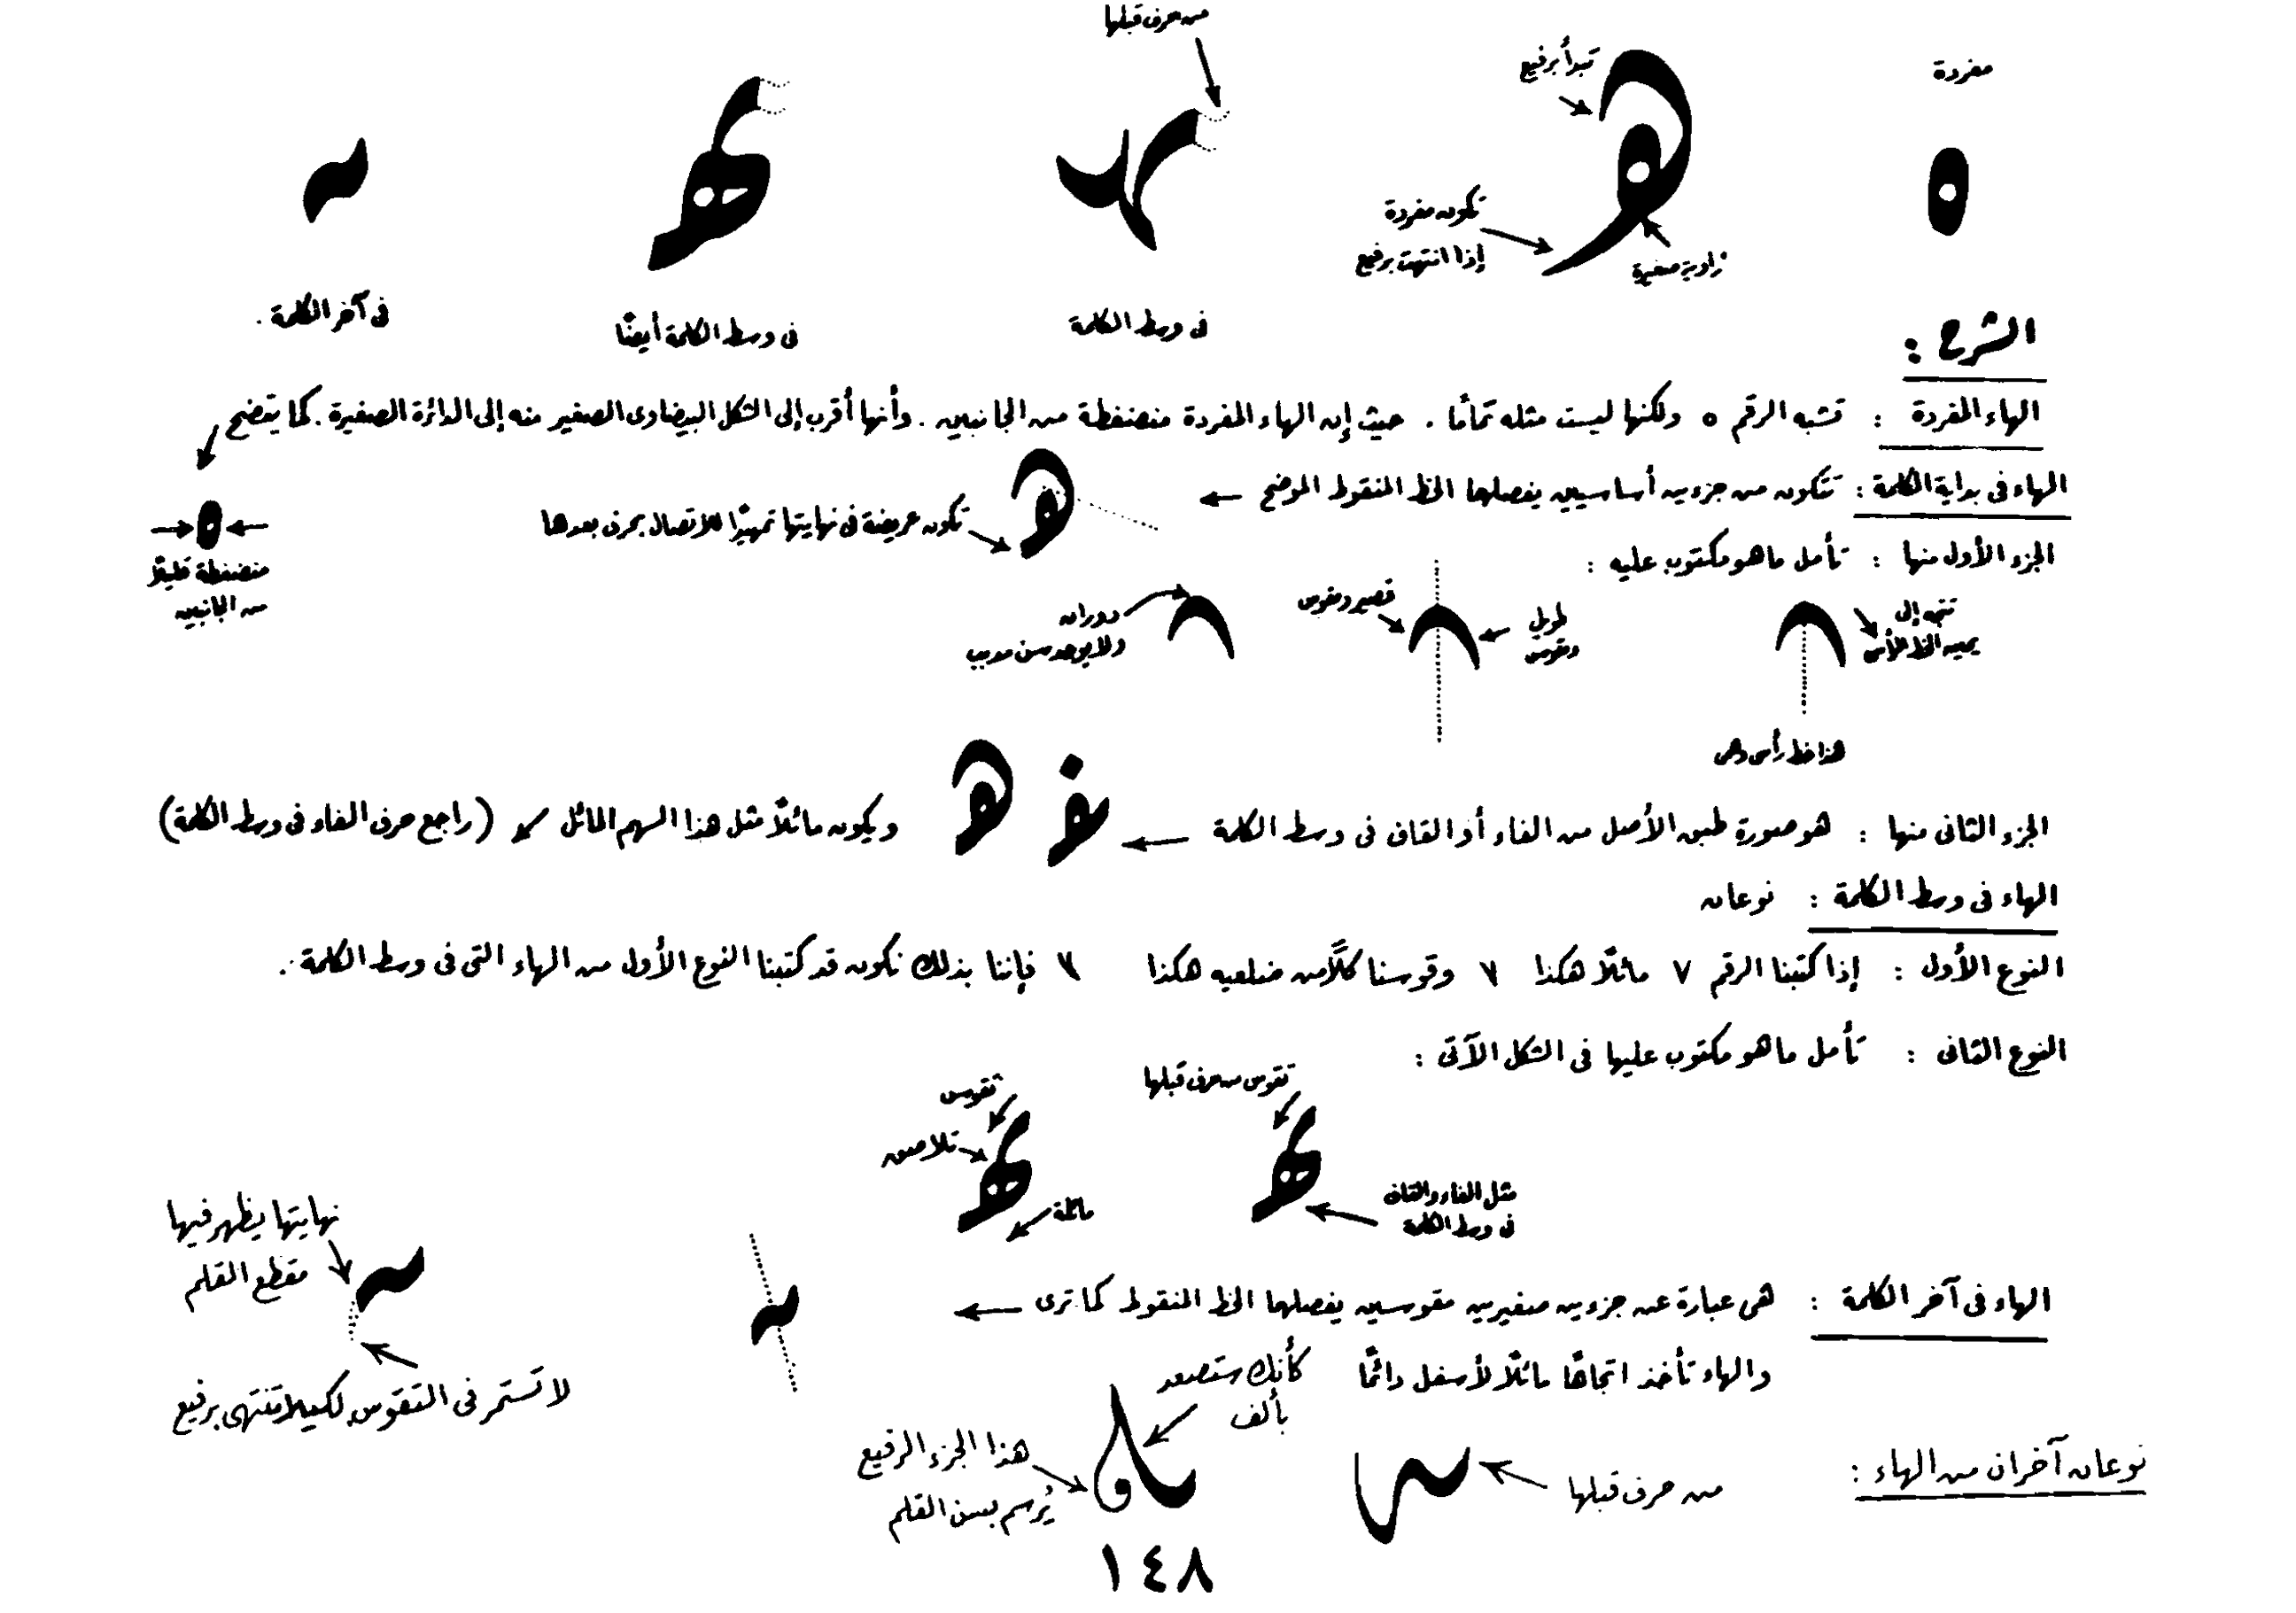 من حرف قبلها
مفردة
تبدأ برفيع
تكون مفردة
إذا انتهت برفيع
زاوية صغيرة
فى وسط الكلمة
فى وسط الكلمة أيضًا
فى آخر الكلمة .
الشرح :
الهاء المفردة : تشبه الرقم ٥ ولكنها ليست مثله تمامًا . حيث إن الهاء المفردة منضغطة من الجانبين . وأنها أقرب إلى الشكل البيضاوى الصغير منه إلى الدائرة الصغيرة . كما يتضح
الهاء فى بداية الكلمة : تتكون من جزءين أساسيين يفصلهما الخط المنقوط الموضح
تكون عريضة فى نهايتها تمهيدًا للاتصال بحرف بعدها
منضغطة قليلاً
من الجانبين
الجزء الأول منها : تأمل ما هو مكتوب عليه :
تتجه إلى
يمين الخط الرأسى
هذا خط رأسى وهمى
طويل
ومقوس
قصير ومقوس
دوران
ولا يوجد سن مدبب
الجزء الثانى منها : هو صورة طبق الأصل من الفاء أو القاف فى وسط الكلمة ف ه ويكون مائلاً مثل هذا السهم المائل (راجع حرف الفاء فى وسط الكلمة)
الهاء فى وسط الكلمة : نوعان
النوع الأول : إذا كتبنا الرقم ٧ مائلاً هكذا ٧ وقوسنا كلاًّ من ضلعيه هكذا ٧ فإننا بذلك نكون قد كتبنا النوع الأول من الهاء التى فى وسط الكلمة .
النوع الثانى : تأمل ما هو مكتوب عليها فى الشكل الآتى :
تقوس من حرف قبلها
مثل الفاء والقاف
فى وسط الكلمة
تقوس
تلاصق
مائلة
نهايتها يظهر فيها
مقطع القلم
الهاء فى آخر الكلمة : هى عبارة عن جزءين صغيرين مقوسين يفصلهما الخط المنقوط كما ترى
والهاء تأخذ اتجاهًا مائلاً لأسفل دائمًا
لا تستمر فى التقوس لكيلا تنتهى برفيع
نوعان آخران من الهاء :
من حرف قبلها
كأنك ستصعد
بألف
هذا الجزء الرفيع
يُرسم بسن القلم
١٤٨